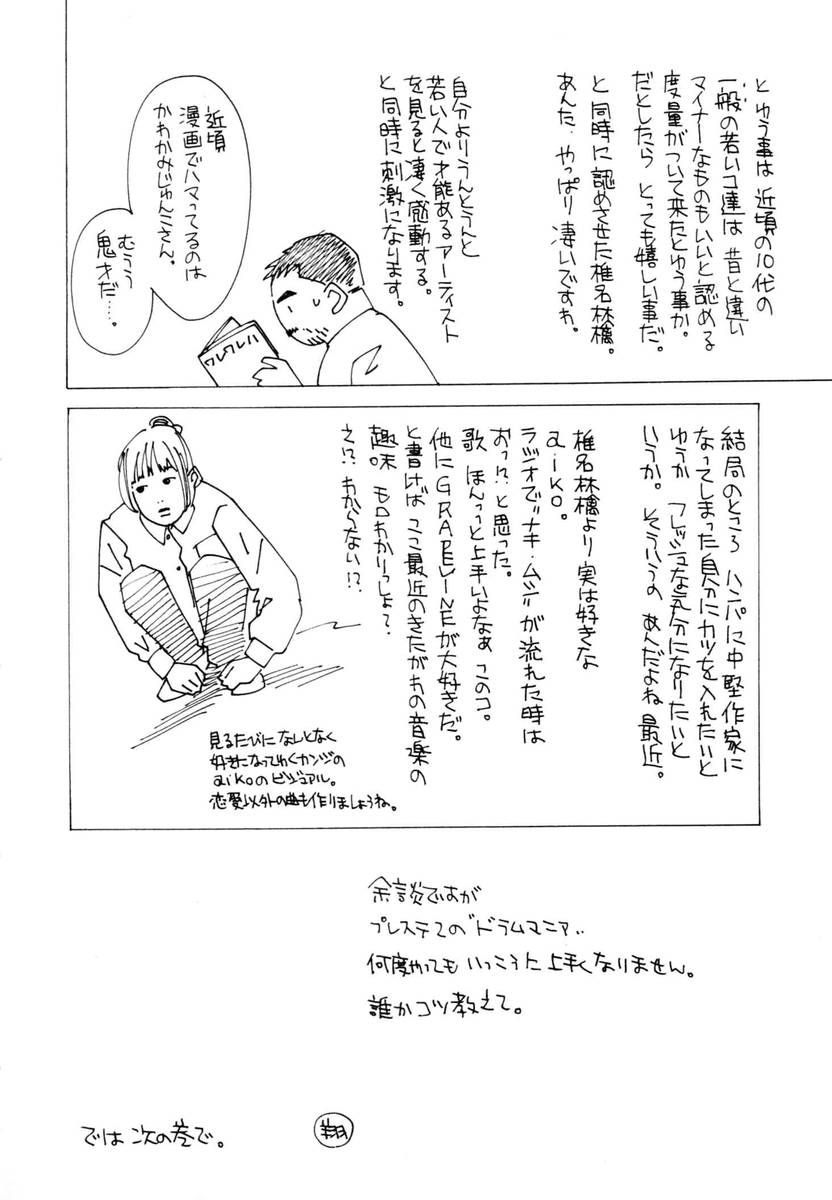 とゆう事は 近頃の10代の
一般の若いコ達は 昔と違い
マイナーなものもいいと認める
度量がついて来たとゆう事か。
だとしたら とっても嬉しい事だ。
と同時に認めさせた椎名林檎。
あんた、やっぱり凄いですわ。
自分よりうんとうんと
若い人で才能あるアーティスト
を見ると凄く感動する。
と同時に刺激になります。
近頃
漫画でハマってるのは
かわかみじゅんこさん。
むうう
鬼才だ……。
ワレワレハ
結局のところ ハンパに中堅作家に
なってしまった自分にカツを入れたいと
ゆうか フレッシュな気分になりたいと
いうか。そういうの あんだよね 最近。
椎名林檎より 実は好きな
aiko。
ラジオで"ナキ・ムシ"が流れた時は
おっ!?と思った。
歌 ほんっっと上手いよなぁ このコ。
他にGRAPEVINEが大好きだ。
と書けば ここ最近のきたがわの音楽の
趣味 モロわかりっしょ?
え!? わからない!?
見るたびに なんとなく
好きになってゆくカンジの
aikoのビジュアル。
恋愛以外の曲も作りましょうね。
余談ですが
プレステ2の"ドラムマニア"
何度やっても いっこうに上手くなりません。
誰かコツ教えて。
では 次の巻で。
翔